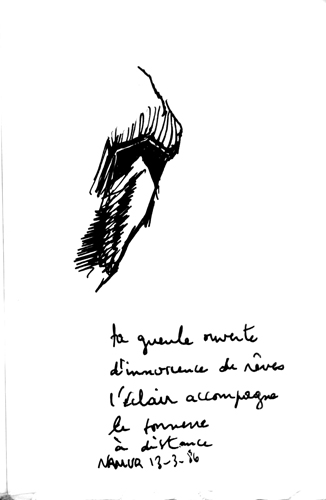 ta gueule ouverte
d'innocence de rêves
l'éclair accompagne
le tonnerre
à distance
NAMUR 13-3-86